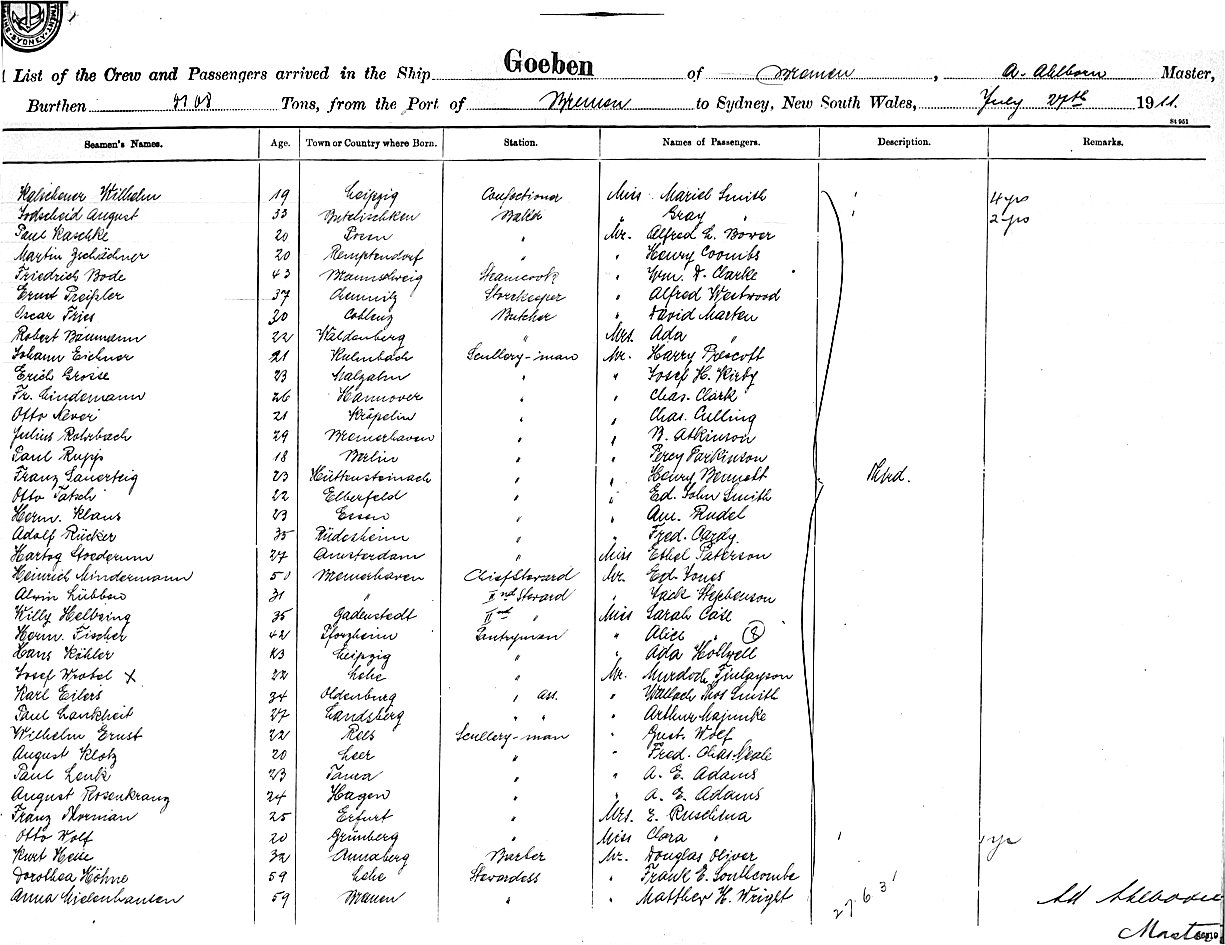 SYDNEY
List of the Crew and Passengers arrived in the Ship Goeben of Bremen, A. Ahlborn Master,
Burthen Tons, from the Port of Bremen to Sydney, New South Wales, July 27th 1911.
St 951
Seamen's Names. Age. Town or Country where Born. Station. Names of Passengers. Description. Remarks.
Wilhelm 19 Leipzig Confectioner Miss Mariel Smith 4 yrs
August 33 Baker " Gray " 2 yrs
Paul Kaschke 20 Posen " Mr. Alfred E. Bover
Martin Zschächner 20 Remptendorf " " Henry Coombs
Friedrich Bode 43 Braunschweig Steamcook " Wm. D. Clarke
Ernst Preißler 37 Storekeeper " Alfred Westwood
Oscar Fries 20 Coblenz Butcher " David Marten
Robert Baumann 22 Waldenberg " Mrs. Ada "
Johann Eichner 21 Kulmbach Scullery-man Mr. Harry Prescott
Erich Grosse 23 Malzahn " " Josef H. Kirby
Fr. Lindemann 26 Hannover " " Chas. Clark
Otto Never 21 Kröpelin " " Chas. Culling
Julius Rohrbach 29 Bremerhaven " " B. Atkinson
Paul Rupp 18 Berlin " " Percy Parkinson
Franz Sauerteig 23 Hüttensteinach " " Henry Bennett Third.
Otto Tatsch 22 Elberfeld " " Ed. John Smith
Herm. Klaus 23 Essen " " Am. Rudel
Adolf Rücker 35 Rüdesheim " " Fred.
Hartog Stoederum 27 Amsterdam " Miss Ethel Paterson
Heinrich Mindermann 50 Bremerhaven Chief Steward Mr. Ed. Jones
Alwin Lübben 31 " IInd Steward " Jack Stephenson
Willy Helbsing 35 Gadenstedt IInd " Miss Sarah Case
Herm. Fischer 42 Pforzheim Pantryman " Alice " 8
Hans Köhler 23 Leipzig " " Ada Hollwell
Josef Wrobel X 22 Lehe " Mr. Murdoch Finlayson
Karl Eilers 34 Oldenburg " ass. " Wallach Thos Smith
Paul Lankheit 27 Landsberg " " " Arthur Majunke
Wilhelm Ernst 22 Rees Scullery-man " Gust. Wolf
August Klotz 20 Leer " " Fred. Chas. Neale
Paul Lenk 23 Tanna " " A. E. Adams
August Rosenkranz 24 Hagen " " A. E. Adams
Franz Thorman 25 Erfurt " Mrs. E. Ruschina
Otto Wolf 20 Grünberg " Miss Clara " 1 yr
Kurt Heise 32 Annaberg Barber Mr. Douglas Oliver
Dorothea Höhne 59 Lehe Stewardess " Frank E. Southcombe
Anna Mielenhausen 59 Bremen " " Matther H. Wright
27. 6. 3 1
Ad Ahlborn
Master